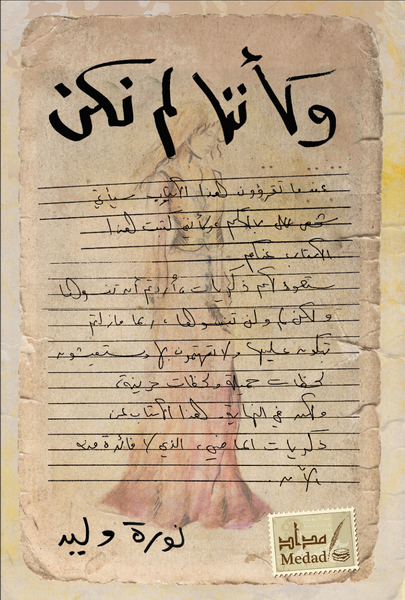 وكأننا لم نكن
عندما تقرؤون هذا الكتاب سيأتي
شخص على بالكم وكأني كتبت هذا
الكتاب عنكم
ستعود لكم ذكريات، أردتم أن تنسوها
ولكن لم ولن تنسوها، ربما مازلتم
تبكون عليها ولا تهتمون بها وستعيشون
لحظات جميلة ولحظات حزينة،
ولكن في النهاية، هذا الكتاب عن
ذكريات الماضي، الذي لا فائدة منه
الآن.
نورة وليد
مداد
Medad